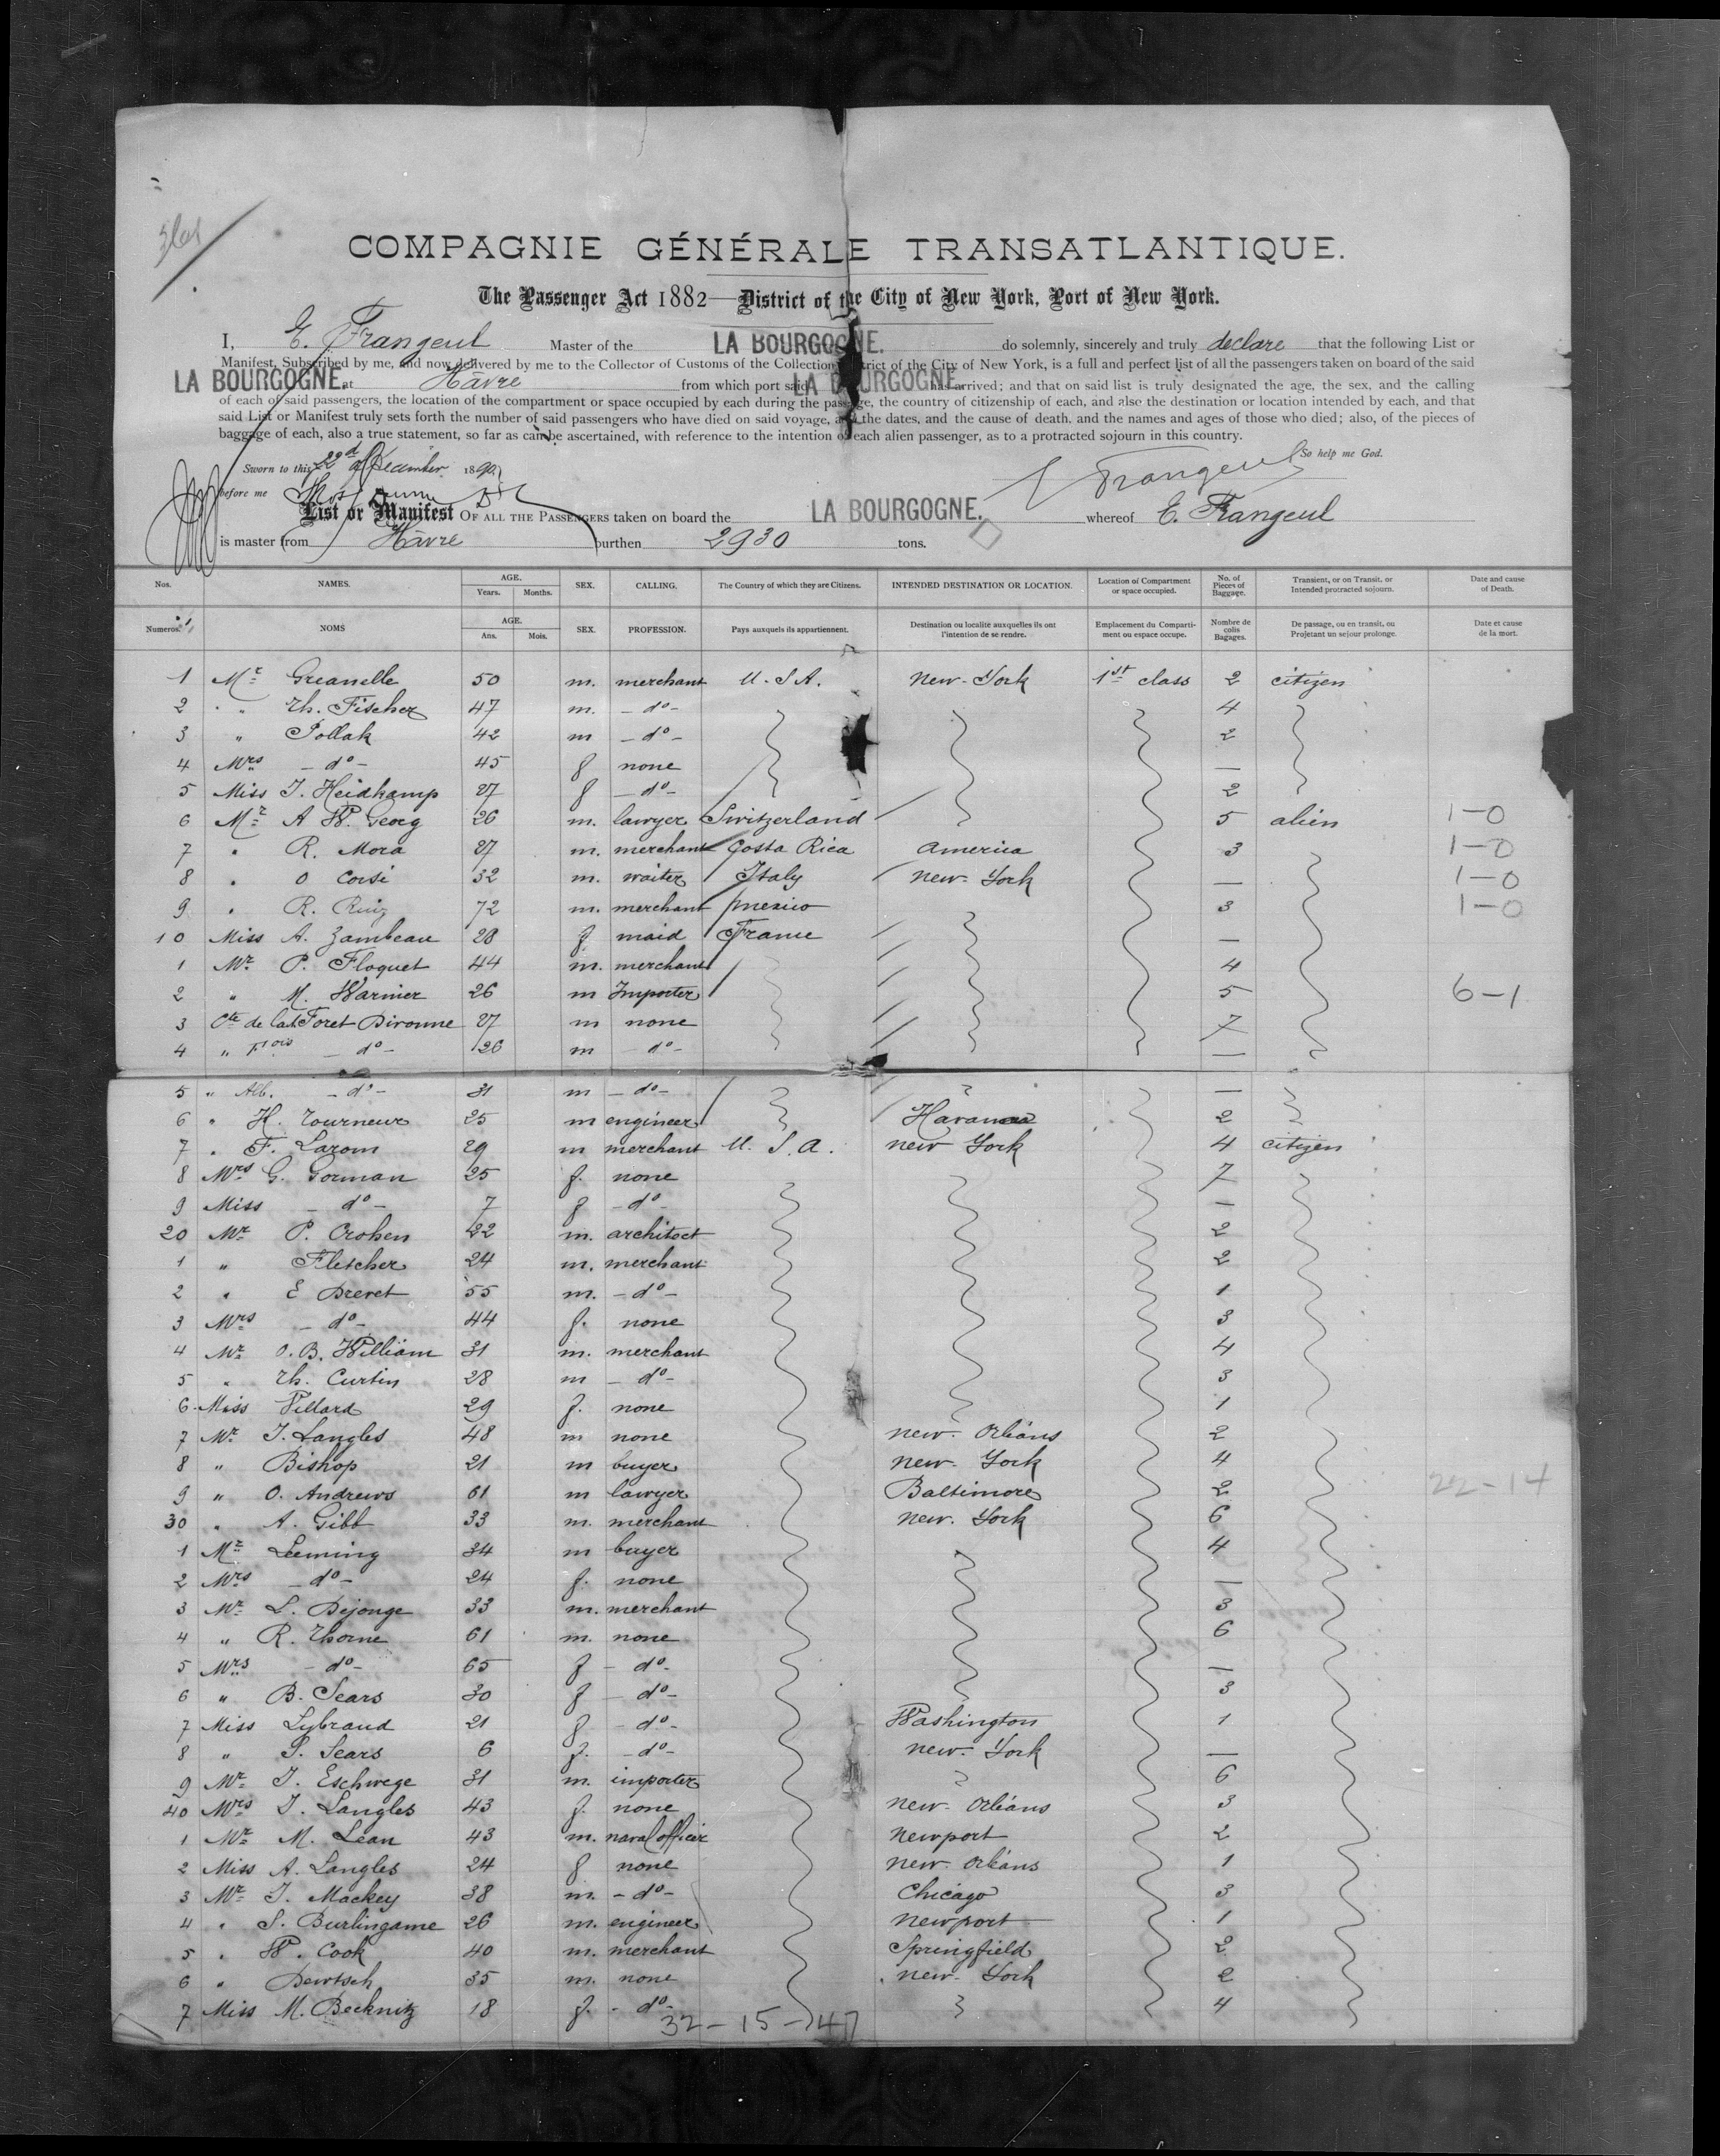 COMPAGNIE GÉNÉRALE TRANSATLANTIQUE.
The Passenger Act 1882—District of the City of New York, Port of New York.
I, E. Frangeul Master of the LA BOURGOGNE. do solemnly, sincerely and truly declare that the following List or
Manifest, Subscribed by me, and now delivered by me to the Collector of Customs of the Collection District of the City of New York, is a full and perfect list of all the passengers taken on board of the said
LA BOURGOGNE. at Hâvre from which port said LA BOURGOGNE. has arrived; and that on said list is truly designated the age, the sex, and the calling
of each of said passengers, the location of the compartment or space occupied by each during the passage, the country of citizenship of each, and also the destination or location intended by each, and that
said List or Manifest truly sets forth the number of said passengers who have died on said voyage, and the dates, and the cause of death, and the names and ages of those who died; also, of the pieces of
baggage of each, also a true statement, so far as can be ascertained, with reference to the intention of each alien passenger, as to a protracted sojourn in this country.
So help me God.
Sworn to this 22d of December 1890
E Frangeul
before me
List or Manifest OF ALL THE PASSENGERS taken on board the LA BOURGOGNE. whereof E. Frangeul
is master from Hâvre burthen 2930 tons.
Nos. NAMES. AGE. Years. Months. SEX. CALLING. The Country of which they are Citizens. INTENDED DESTINATION OR LOCATION. Location of Compartment or space occupied. No. of Pieces of Baggage. Transient, or on Transit, or Intended protracted sojourn. Date and cause of Death.
Numeros. NOMS AGE. Ans. Mois. SEX. PROFESSION. Pays auxquels ils appartiennent. Destination ou localité auxquelles ils ont l'intention de se rendre. Emplacement du Compartiment ou espace occupe. Nombre de colis Bagages. De passage, ou en transit, ou Projetant un sejour prolonge. Date et cause de la mort.
1 Mr Greanelle 50 m. merchant U.S.A. New-York 1st class 2 citizen
2 " Th. Fischer 47 m. - do - 4
3 " Pollak 42 m - do - 2
4 Mrs - do - 45 f none —
5 Miss J. Heidkamp 27 f - do - 2
6 Mr A W. Georg 26 m. lawyer Switzerland 5 alien 1-0
7 " R. Mora 27 m. merchant Costa Rica America 3 1-0
8 " O Corsi 32 m. waiter Italy New-York — 1-0
9 " R. Ruiz 72 m. merchant Mexico 3 1-0
10 Miss A. Zambeau 28 f. maid France —
1 Mr P. Floquet 44 m. merchant 4
2 " M. Warnier 26 m Importer 5 6-1
3 Cte de la Foret Divonne 27 m none 7
4 " Fois - do - 26 m - do - —
5 " Alb. - do - 31 m - do - —
6 " H. Tourneur 25 m engineer Havana 2
7 " F. Larom 29 m merchant U.S.A. New York 4 citizen
8 Mrs G. Gorman 25 f. none 7
9 Miss - do - 7 f - do - —
20 Mr P. Crohen 22 m. architect 2
1 " Fletcher 24 m. merchant 2
2 " E Drevet 55 m. - do - 1
3 Mrs - do - 44 f. none 3
4 Mr O.B. William 31 m. merchant 4
5 " Th. Curtin 28 m - do - 3
6 Miss Villard 29 f. none 1
7 Mr J. Langles 48 m none New-Orléans 2
8 " Bishop 21 m buyer New-York 4
9 " O. Andrews 61 m lawyer Baltimore 2 22-14
30 " A. Gibb 33 m. merchant New-York 6
1 Mr Leeming 34 m buyer 4
2 Mrs - do - 24 f. none —
3 Mr L. Dejonge 33 m. merchant 3
4 " R. Thorne 61 m. none 6
5 Mrs - do - 65 f - do - —
6 " B. Sears 30 f - do - 3
7 Miss Lybrand 21 f - do - Washington 1
8 " S. Sears 6 f. - do - New-York —
9 Mr J. Eschwege 31 m. importer 6
40 Mrs J. Langles 43 f. none New-Orléans 3
1 Mr M. Lean 43 m. naval officer Newport 2
2 Miss A. Langles 24 f none New-Orléans 1
3 Mr J. Mackey 38 m. - do - Chicago 3
4 " S. Burlingame 26 m. engineer Newport 1
5 " W. Cook 40 m. merchant Springfield 2
6 " Dewtsch 35 m. none New-York 2
7 Miss M. Becknitz 18 f. - do - 4
32-15-47